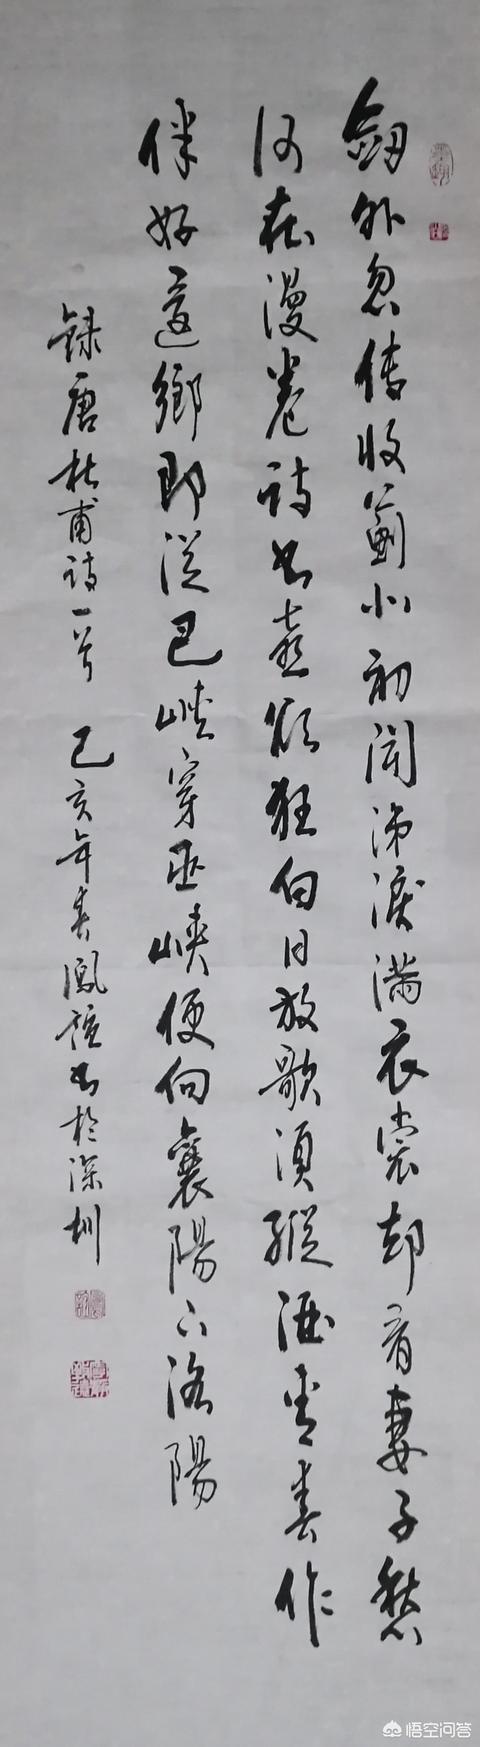 劒外忽傳收薊北初聞涕淚滿衣裳却看妻子愁
何在漫卷詩書喜欲狂白日放歌須縱酒青春作
伴好還鄉即從巴峽穿巫峽便向襄陽下洛陽
録唐杜甫詩一首 己亥年春鳳 書於深圳
悟空问答